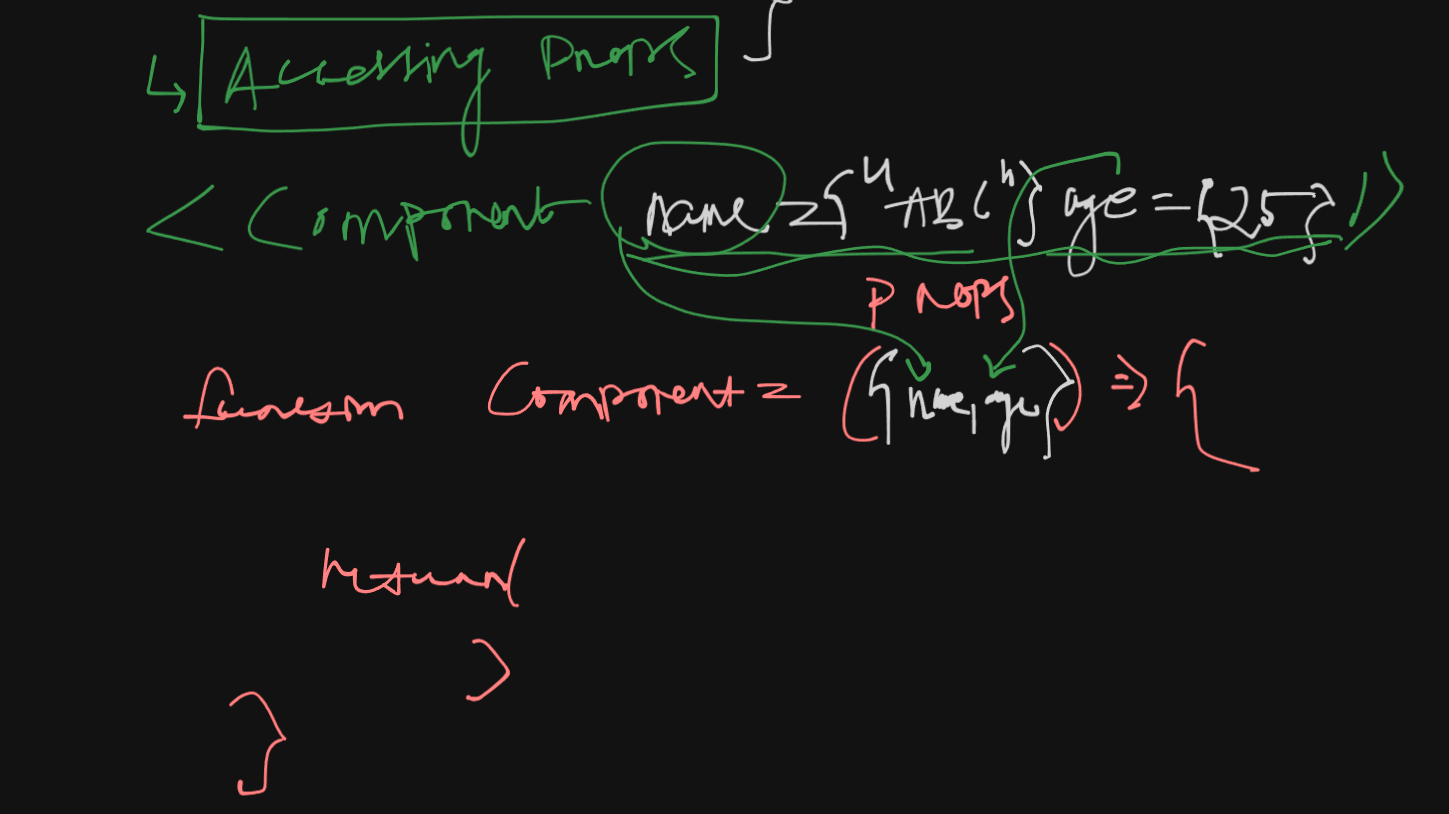 ↳ Accessing Props }
<Component name={"ABC"} age={25}/>
Props
function Component = ({name, age}) => {
return (
)
}